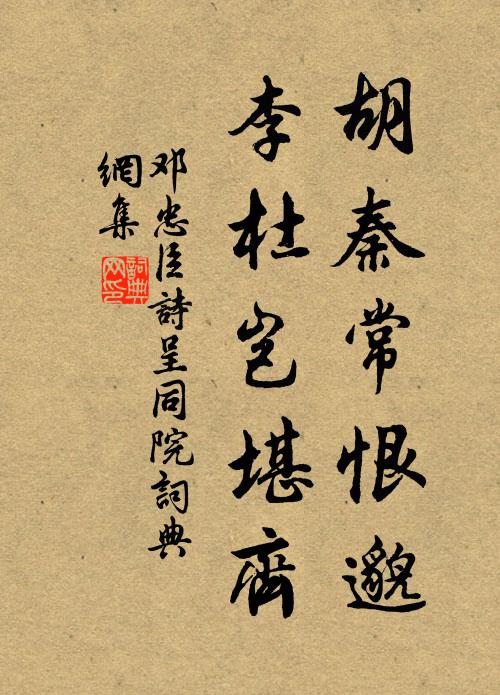 胡秦常恨邈
李杜岂堪齊
邓忠臣詩呈同院詞典
網集
詞典網印